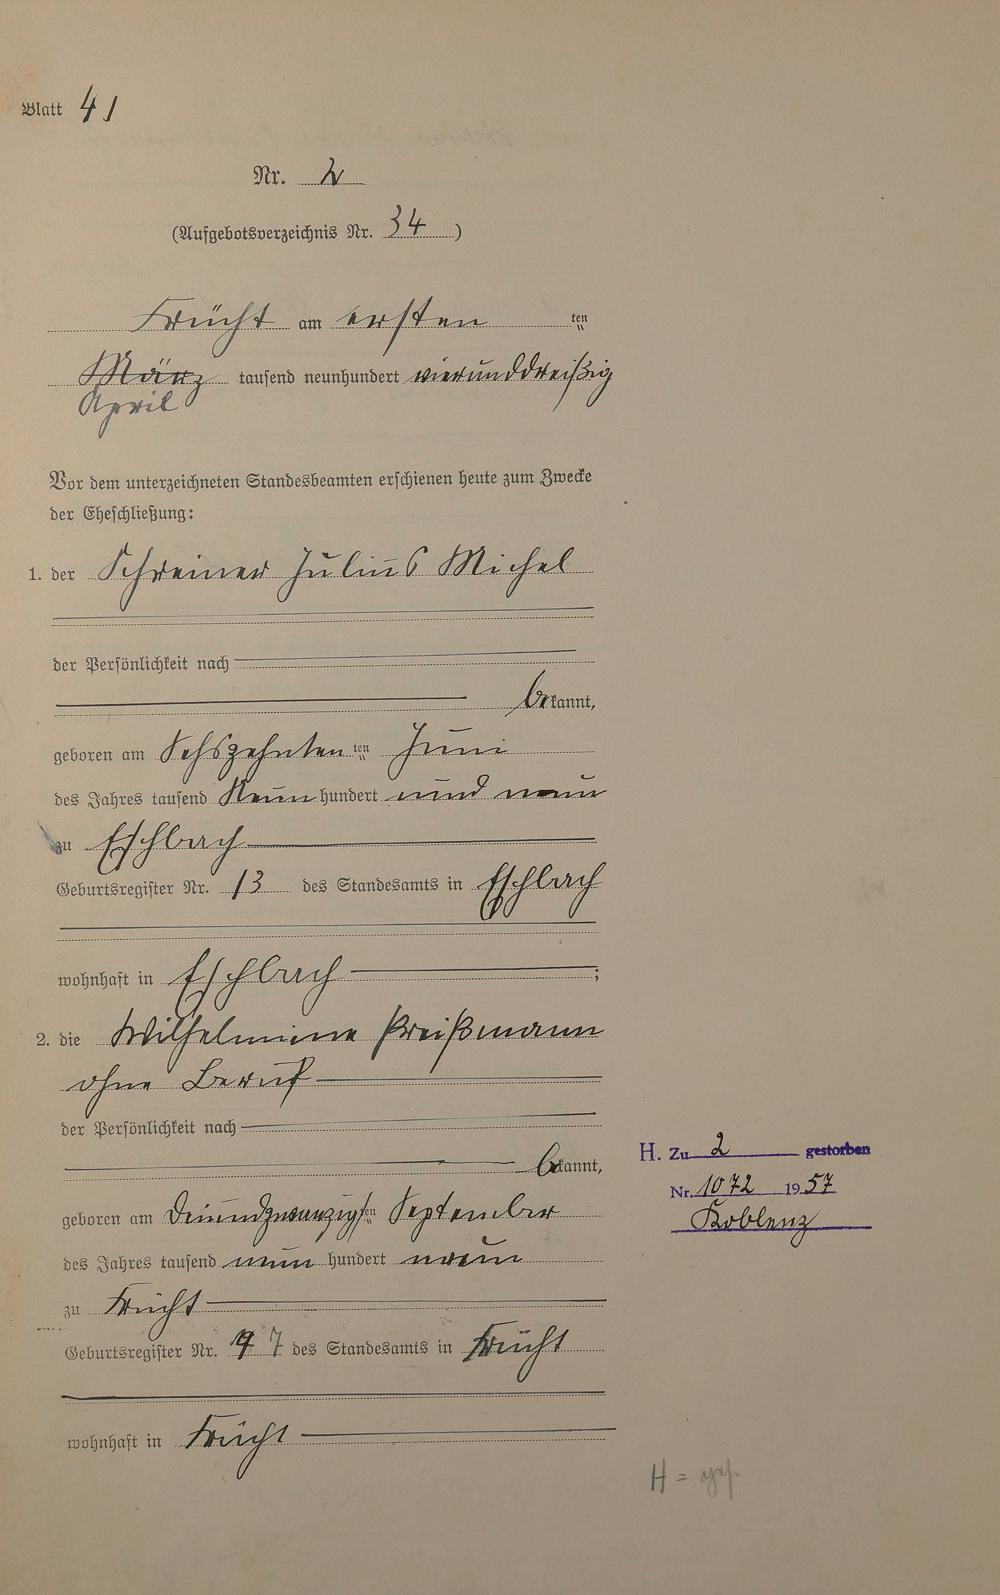 Blatt 41
Nr. 2
(Aufgebotsverzeichnis Nr. 34)
Frücht am ersten ten
März tausend neunhundert vierunddreißig
April
Vor dem unterzeichneten Standesbeamten erschienen heute zum Zwecke
der Eheschließung:
1. der Schreiner Julius Michel
der Persönlichkeit nach
bekannt,
geboren am Sechszehnten ten Juni
des Jahres tausend Neun hundert und neun
zu Eschbach
Geburtsregister Nr. 13 des Standesamts in Eschbach
wohnhaft in Eschbach ;
2. die Wilhelmine Preißmann
ohne Beruf
der Persönlichkeit nach
bekannt,
H. Zu 2 gestorben
Nr. 1072 1957
Koblenz
geboren am Dreiundzwanzigsten September
des Jahres tausend neun hundert neun
zu Frücht
Geburtsregister Nr. 7 des Standesamts in Frücht
wohnhaft in Frücht
H =